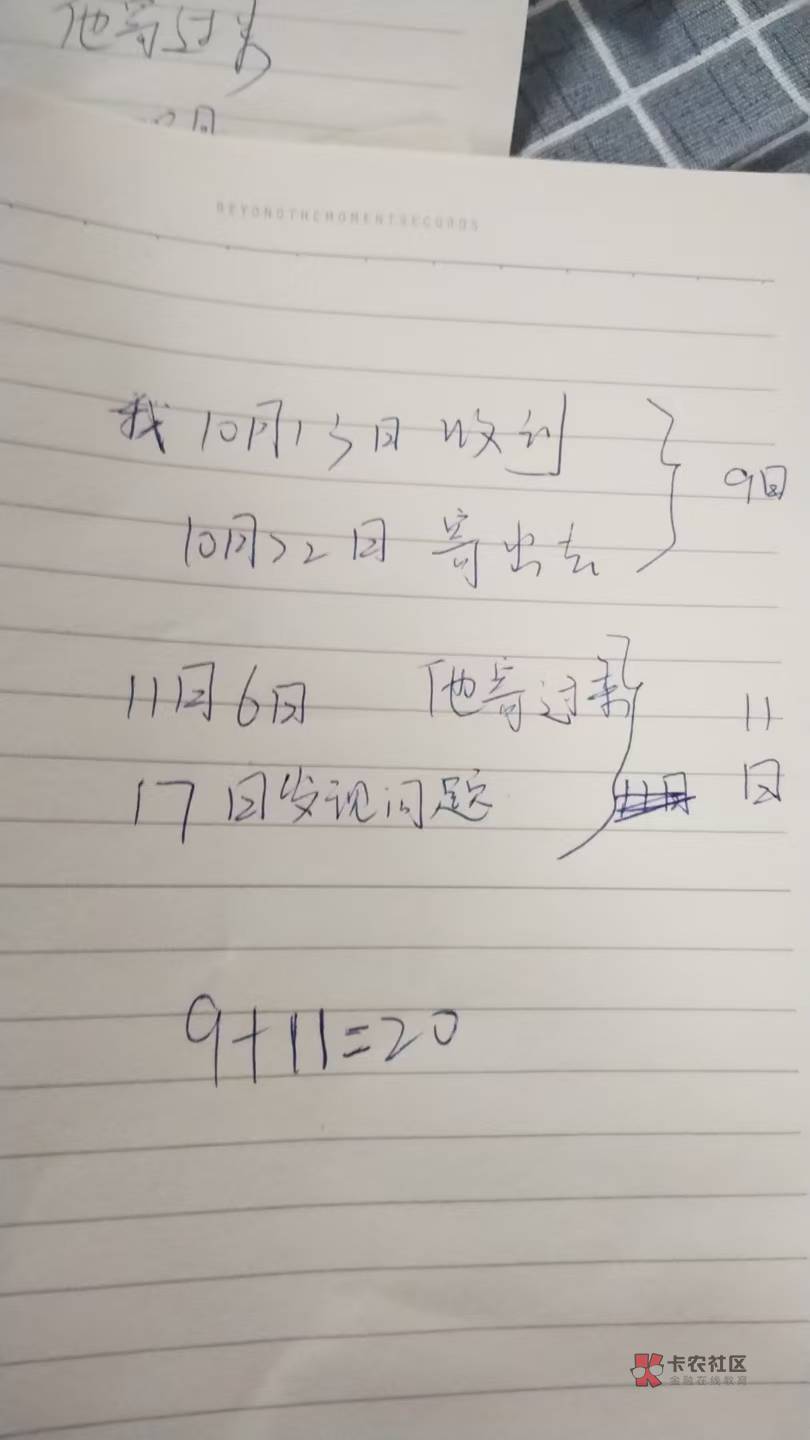 他寄过来
月
BEYONDTHEMOMENTRECORDS
我10月13日 收到
10月22日 寄出去
9日
11月6日 他寄过来
17日发现问题
11日
11日
9+11=20
卡农社区
金融在线教育